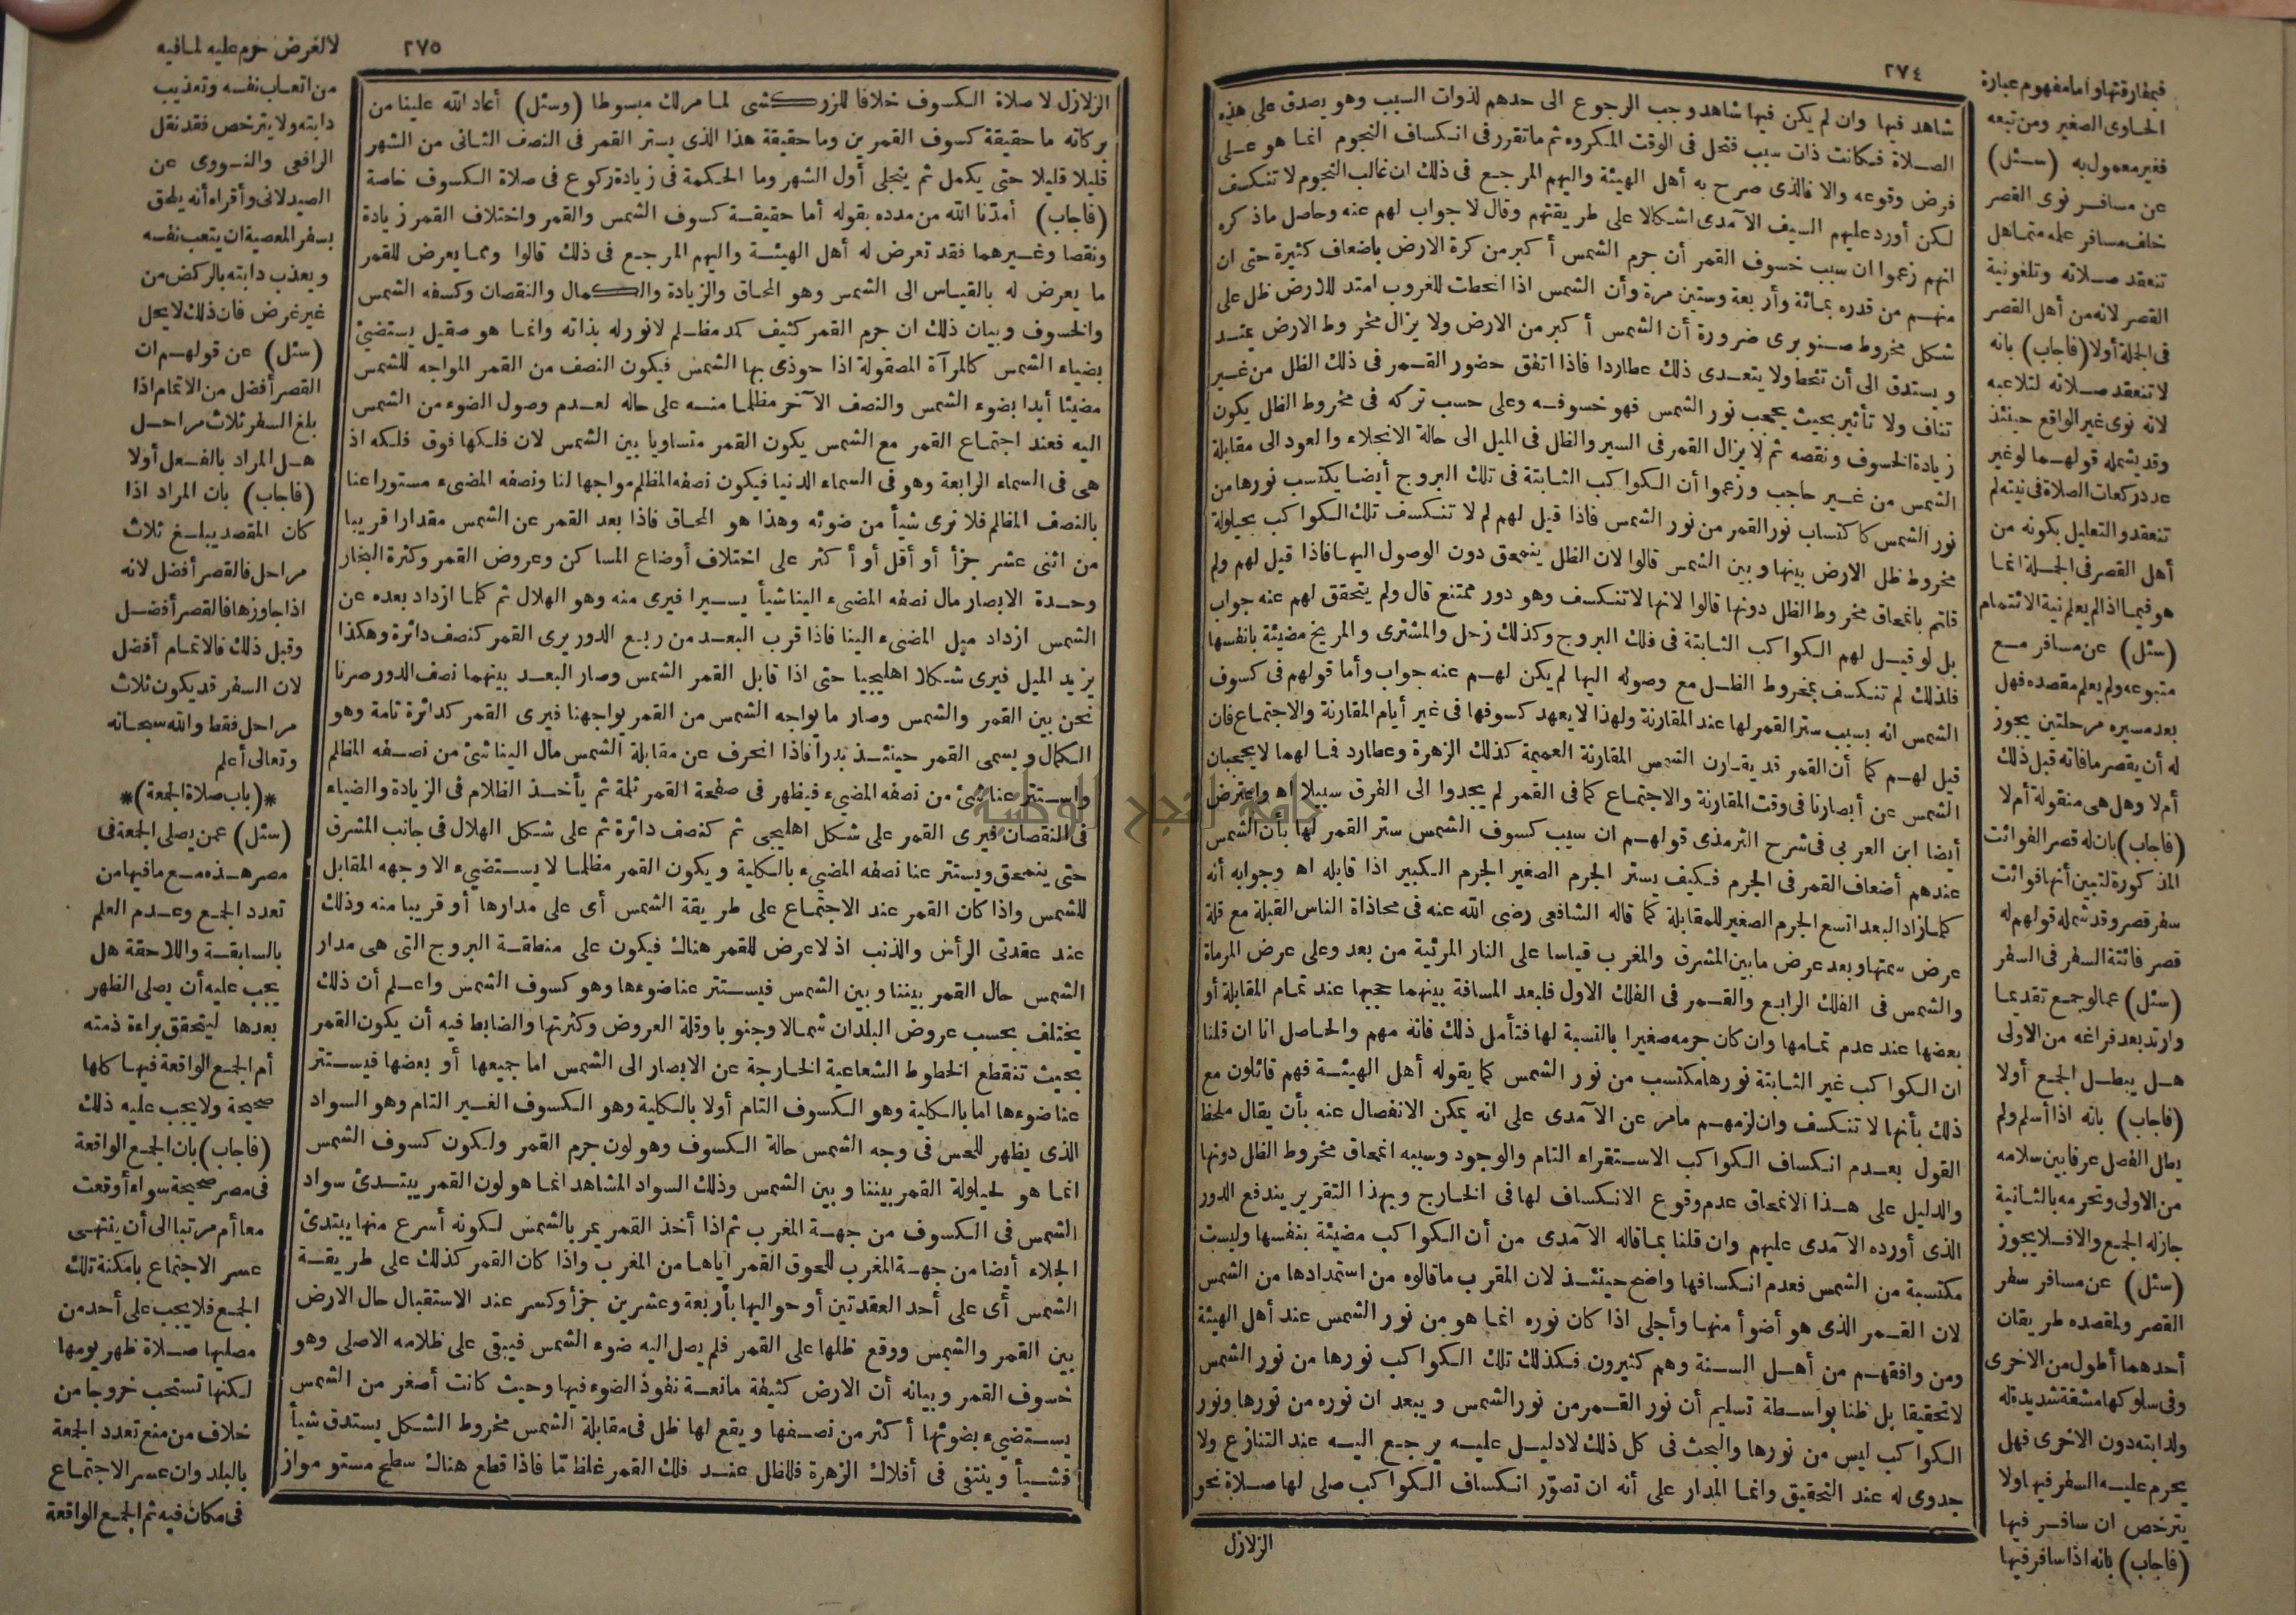 ٢٧٤
شاهد فيها وان لم يكن فيها شاهد وجب الرجوع الى حدهم لذوات السبب وهو يصدق على هذه
الصلاة فكانت ذات سبب فتحل فى الوقت المكروه ثم ما تقرر فى انكساف النجوم انما هو على
فرض وقوعه والا فالذى صرح به أهل الهيئة واليهم المرجع فى ذلك ان غالب النجوم لا تنكسف
لكن أورد عليهم السيف الآمدى اشكالا على طريقتهم وقال لا جواب لهم عنه وحاصل ماذكره
انهم زعموا ان سبب خسوف القمر أن جرم الشمس أكبر من كرة الارض باضعاف كثيرة حتى ان
منهم من قدره بمائة وأربعة وستين مرة وأن الشمس اذا انحطت للغروب امتد للارض ظل على
شكل مخروط صنوبرى ضرورة أن الشمس أكبر من الارض ولا يزال مخروط الارض يمتد
ويستدق الى أن تنحط ولا يتعدى ذلك عطاردا فاذا اتفق حضور القمر فى ذلك الظل من غير
تناف ولا تأثير بحيث يحجب نور الشمس فهو خسوفه وعلى حسب تركه فى مخروط الظل يكون
زيادة الخسوف ونقصه ثم لا يزال القمر فى السير والظل فى الميل الى حالة الانجلاء والعود الى مقابلة
الشمس من غير حاجب وزعموا أن الكواكب الثابتة فى تلك البروج أيضا يكتسب نورها من
نور الشمس كاكتساب نور القمر من نور الشمس فاذا قيل لهم لم لا تنكسف تلك الكواكب بحيلولة
مخروط ظل الارض بينها وبين الشمس قالوا لان الظل ينمحق دون الوصول اليها فاذا قيل لهم ولم
قلتم بانمحاق مخروط الظل دونها قالوا لانها لا تنكسف وهو دور ممتنع قال ولم يتحقق لهم عنه جواب
بل لو قيل لهم الكواكب الثابتة فى فلك البروج وكذلك زحل والمشترى والمريخ مضيئة بانفسها
فلذلك لم تنكسف بمخروط الظل مع وصوله اليها لم يكن لهم عنه جواب وأما قولهم فى كسوف
الشمس انه بسبب ستر القمر لها عند المقارنة ولهذا لا يعهد كسوفها فى غير أيام المقارنة والاجتماع فان
قيل لهم كما أن القمر قد يقارن الشمس المقارنة العميمة كذلك الزهرة وعطارد فما لهما لا يحجبان
الشمس عن أبصارنا فى وقت المقارنة والاجتماع كما فى القمر لم يجدوا الى الفرق سبيلا اه واعترض
أيضا ابن العربى فى شرح الترمذى قولهم ان سبب كسوف الشمس ستر القمر لها بأن الشمس
عندهم أضعاف القمر فى الجرم فكيف يستر الجرم الصغير الجرم الكبير اذا قابله اه وجوابه أنه
كلما زاد البعد اتسع الجرم الصغير للمقابلة كما قاله الشافعى رضى الله عنه فى محاذاة الناس القبلة مع قلة
عرض سمتها وبعد عرض ما بين المشرق والمغرب قياسا على النار المرئية من بعد وعلى عرض المرماة
والشمس فى الفلك الرابع والقمر فى الفلك الاول فلبعد المسافة بينهما حجبها عند تمام المقابلة أو
بعضها عند عدم تمامها وان كان جرمه صغيرا بالنسبة لها فتأمل ذلك فانه مهم والحاصل انا ان قلنا
ان الكواكب غير الثابتة نورها مكتسب من نور الشمس كما يقوله أهل الهيئة فهم قائلون مع
ذلك بأنها لا تنكسف وان لزمهم مامر عن الآمدى على انه يمكن الانفصال عنه بأن يقال ملحظ
القول بعدم انكساف الكواكب الاستقراء التام والوجود وسببه انمحاق مخروط الظل دونها
والدليل على هذا الانمحاق عدم وقوع الانكساف لها فى الخارج وبهذا التقرير يندفع الدور
الذى أورده الآمدى عليهم وان قلنا بما قاله الآمدى من أن الكواكب مضيئة بنفسها وليست
مكتسبة من الشمس فعدم انكسافها واضح حينئذ لان المقرب ما قالوه من استمدادها من الشمس
لان القمر الذى هو أضوأ منها وأجلى اذا كان نوره انما هو من نور الشمس عند أهل الهيئة
ومن وافقهم من أهل السنة وهم كثيرون فكذلك تلك الكواكب نورها من نور الشمس
لا تحقيقا بل ظنا بواسطة تسليم أن نور القمر من نور الشمس ويبعد ان نوره من نورها ونور
الكواكب ليس من نورها والبحث فى كل ذلك لا دليل عليه يرجع اليه عند التنازع ولا
جدوى له عند التحقيق وانما المدار على أنه ان تصوّر انكساف الكواكب صلى لها صلاة نحو
الزلازل
فبمفارقتها وأما مفهوم عبارة
الحاوى الصغير ومن تبعه
فغير معمول به (سئل)
عن مسافر نوى القصر
خلف مسافر علمه متماهل
تنعقد صلاته وتلغو نية
القصر لانه من أهل القصر
فى الجملة أولا (فاجاب) بانه
لا تنعقد صلاته لتلاعبه
لانه نوى غير الواقع حينئذ
وقد يشمله قولهما لو غير
عدد ركعات الصلاة فى نيته لم
تنعقد والتعليل بكونه من
أهل القصر فى الجملة انما
هو فيما اذا لم يعلم نية الائتمام
(سئل) عن مسافر مع
متبوعه ولم يعلم مقصده فهل
بعد مسيره مرحلتين يجوز
له أن يقصر ما فاته قبل ذلك
أم لا وهل هى منقولة أم لا
(فاجاب) بان له قصر الفوائت
المذكورة لتبين أنها فوائت
سفر قصر وقد شمله قولهم له
قصر فائتة السفر فى السفر
(سئل) عما لو جمع تقديما
وارتد بعد فراغه من الاولى
هل يبطل الجمع أولا
(فاجاب) بانه اذا أسلم ولم
يطل الفصل عرفا بين سلامه
من الاولى وتحرمه بالثانية
جاز له الجمع والا فلا يجوز
(سئل) عن مسافر سفر
القصر ولمقصده طريقان
أحدهما أطول من الاخرى
وفى سلوكها مشقة شديدة له
ولدابته دون الاخرى فهل
يحرم عليه السفر فيها ولا
يترخص ان سافر فيها
(فاجاب) بانه اذا سافر فيها
٢٧٥
الزلازل لا صلاة الكسوف خلافا للزركشى لما مر لك مبسوطا (وسئل) أعاد الله علينا من
بركاته ما حقيقة كسوف القمرين وما حقيقة هذا الذى يستر القمر فى النصف الثانى من الشهر
قليلا قليلا حتى يكمل ثم ينجلى أول الشهر وما الحكمة فى زيادة ركوع فى صلاة الكسوف خاصة
(فاجاب) أمدّنا الله من مدده بقوله أما حقيقة كسوف الشمس والقمر واختلاف القمر زيادة
ونقصا وغيرهما فقد تعرض له أهل الهيئة واليهم المرجع فى ذلك قالوا ومما يعرض للقمر
ما يعرض له بالقياس الى الشمس وهو المحاق والزيادة والكمال والنقصان وكسفه الشمس
والخسوف وبيان ذلك ان جرم القمر كثيف كمد مظلم لا نور له بذاته وانما هو صقيل يستضئ
بضياء الشمس كالمرآة المصقولة اذا حوذى بها الشمس فيكون النصف من القمر المواجه للشمس
مضيئا أبدا بضوء الشمس والنصف الآخر مظلما منه على حاله لعدم وصول الضوء من الشمس
اليه فعند اجتماع القمر مع الشمس يكون القمر متساويا بين الشمس لان فلكها فوق فلكه اذ
هى فى السماء الرابعة وهو فى السماء الدنيا فيكون نصفه المظلم مواجها لنا ونصفه المضىء مستورا عنا
بالنصف المظلم فلا نرى شيأ من ضوئه وهذا هو المحاق فاذا بعد القمر عن الشمس مقدارا قريبا
من اثنى عشر جزأ أو أقل أو أكثر على اختلاف أوضاع المساكن وعروض القمر وكثرة البخار
وحدة الابصار مال نصفه المضىء الينا شيأ يسيرا فيرى منه وهو الهلال ثم كلما ازداد بعده عن
الشمس ازداد ميل المضىء الينا فاذا قرب البعد من ربع الدور يرى القمر كنصف دائرة وهكذا
يزيد الميل فيرى شكلا اهليجيا حتى اذا قابل القمر الشمس وصار البعد بينهما نصف الدور صرنا
نحن بين القمر والشمس وصار ما يواجه الشمس من القمر يواجهنا فيرى القمر كدائرة تامة وهو
الكمال ويسمى القمر حينئذ بدرا فاذا انحرف عن مقابلة الشمس مال الينا شئ من نصفه المظلم
واستتر عنا شئ من نصفه المضىء فيظهر فى صفحة القمر ثلمة ثم يأخذ الظلام فى الزيادة والضياء
فى النقصان فيرى القمر على شكل اهليجى ثم كنصف دائرة ثم على شكل الهلال فى جانب المشرق
حتى ينمحق ويستتر عنا نصفه المضىء بالكلية ويكون القمر مظلما لا يستضىء الا وجهه المقابل
للشمس واذا كان القمر عند الاجتماع على طريقة الشمس أى على مدارها أو قريبا منه وذلك
عند عقدتى الرأس والذنب اذ لا عرض للقمر هناك فيكون على منطقة البروج التى هى مدار
الشمس حال القمر بيننا وبين الشمس فيستتر عنا ضوءها وهو كسوف الشمس واعلم أن ذلك
يختلف بحسب عروض البلدان شمالا وجنوبا وقلة العروض وكثرتها والضابط فيه أن يكون القمر
بحيث تنقطع الخطوط الشعاعية الخارجة عن الابصار الى الشمس اما جميعها أو بعضها فيستتر
عنا ضوءها اما بالكلية وهو الكسوف التام أولا بالكلية وهو الكسوف الغير التام وهو السواد
الذى يظهر للحس فى وجه الشمس حالة الكسوف وهو لون جرم القمر ولكون كسوف الشمس
انما هو لحيلولة القمر بيننا وبين الشمس وذلك السواد المشاهد انما هو لون القمر يبتدئ سواد
الشمس فى الكسوف من جهة المغرب ثم اذا أخذ القمر يمر بالشمس لكونه أسرع منها يبتدئ
الجلاء أيضا من جهة المغرب للحوق القمر اياها من المغرب واذا كان القمر كذلك على طريقة
الشمس أى على أحد العقدتين أو حواليها بأربعة وعشرين جزأ وكسر عند الاستقبال حال الارض
بين القمر والشمس ووقع ظلها على القمر فلم يصل اليه ضوء الشمس فيبقى على ظلامه الاصلى وهو
خسوف القمر وبيانه أن الارض كثيفة مانعة نفوذ الضوء فيها وحيث كانت أصغر من الشمس
يستضىء بضوئها أكثر من نصفها ويقع لها ظل فى مقابلة الشمس مخروط الشكل يستدق شيأ
فشيأ وينتفى فى أفلاك الزهرة فللظل عند فلك القمر غلظ مّا فاذا قطع هناك سطح مستو مواز
لا لغرض حرم عليه لما فيه
من اتعاب نفسه وتعذيب
دابته ولا يترخص فقد نقل
الرافعى والنووى عن
الصيدلانى وأقراه أنه يلحق
بسفر المعصية ان يتعب نفسه
ويعذب دابته بالركض من
غير غرض فان ذلك لا يحل
(سئل) عن قولهم ان
القصر أفضل من الاتمام اذا
بلغ السفر ثلاث مراحل
هل المراد بالفعل أولا
(فاجاب) بان المراد اذا
كان المقصد يبلغ ثلاث
مراحل فالقصر أفضل لانه
اذا جاوزها فالقصر أفضل
وقبل ذلك فالاتمام أفضل
لان السفر قد يكون ثلاث
مراحل فقط والله سبحانه
وتعالى أعلم
*(باب صلاة الجمعة)*
(سئل) عمن يصلى الجمعة فى
مصر هذه مع ما فيها من
تعدد الجمع وعدم العلم
بالسابقة واللاحقة هل
يجب عليه أن يصلى الظهر
بعدها ليتحقق براءة ذمته
أم الجمع الواقعة فيها كلها
صحيحة ولا يجب عليه ذلك
(فاجاب) بان الجمع الواقعة
فى مصر صحيحة سواء أوقعت
معا أم مرتبا الى أن ينتهى
عسر الاجتماع بامكنة تلك
الجمع فلا يجب على أحد من
مصليها صلاة ظهر يومها
لكنها تستحب خروجا من
خلاف من منع تعدد الجمعة
بالبلد وان عسر الاجتماع
فى مكان فيه ثم الجمع الواقعة